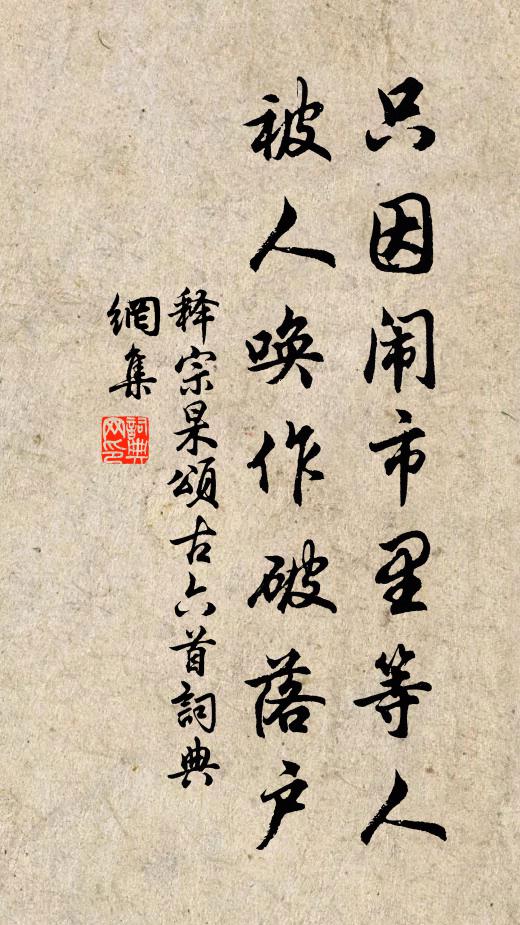 只因闹市里等人
被人唤作破落户
释宗杲頌古六首詞典
網集
詞典
网印